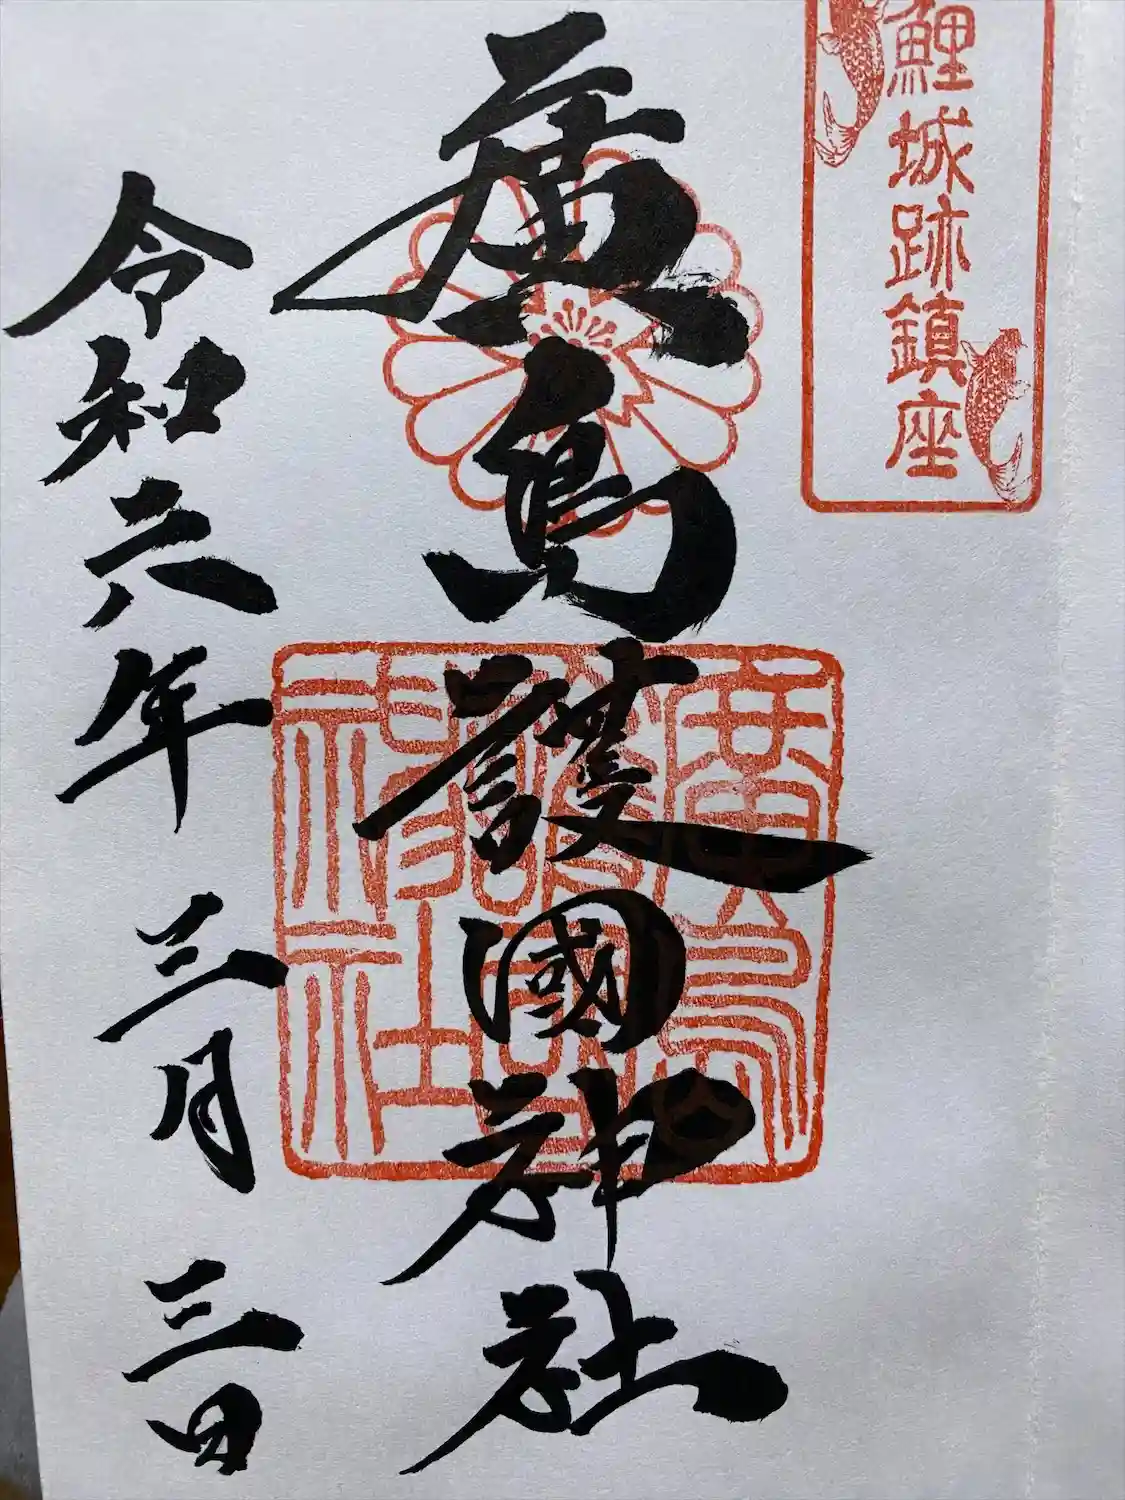 鯉城跡鎮座
廣島護國神社
廣島
護國
神社
令和六年 三月 三日